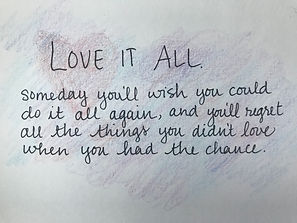 LOVE IT ALL.
Someday you'll wish you could
do it all again, and you'll regret
all the things you didn't love
when you had the chance.